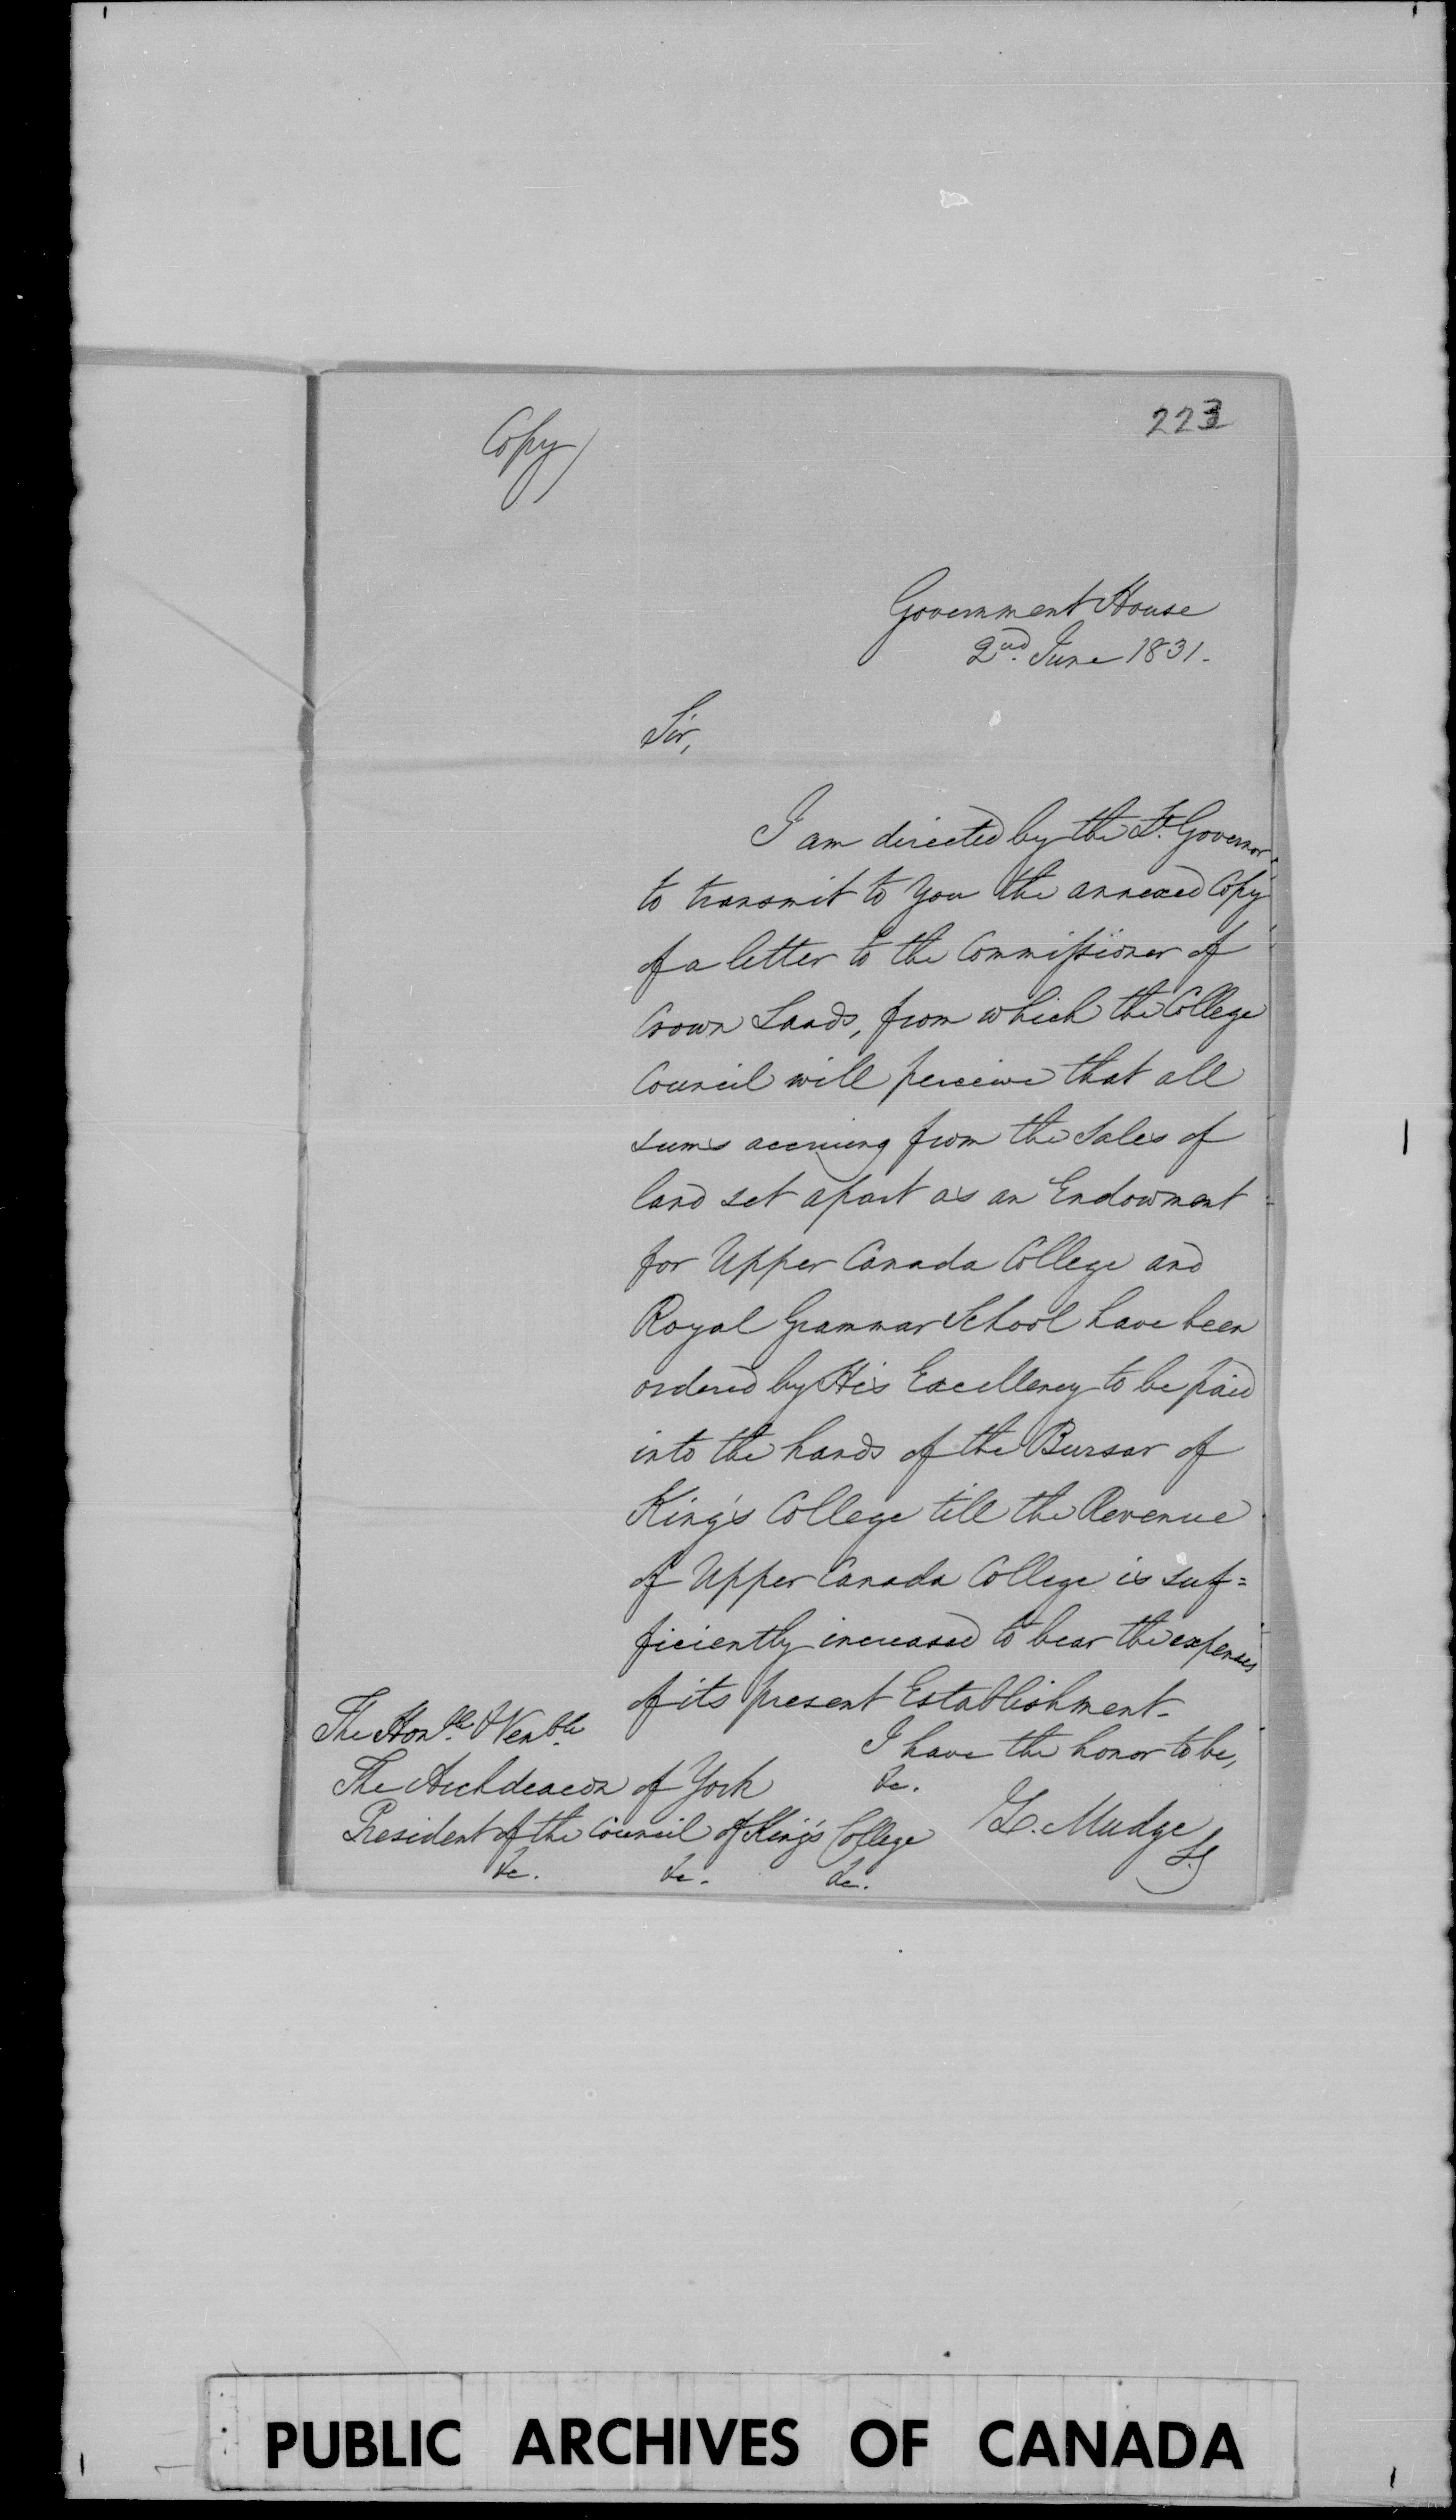 Copy/
223
Government House
2nd. June 1831.
Sir,
I am directed by the Lt. Governor
to transmit to You the annexed Copy
of a letter to the Commissioner of
Crown Lands, from which the College
Council will perceive that all
sums accruing from the Sales of
land set apart as an Endowment
for Upper Canada College and
Royal Grammar School have been
ordered by His Excellency to be paid
into the hands of the Bursar of
King's College till the Revenue
of Upper Canada College is suf=
ficiently increased to bear the expenses
of its present Establishment.
I have the honor to be,
&c.
Z. Mudge
The Honble. & Venble.
The Archdeacon of York
President of the Council of King's College
&c. &c. &c.
PUBLIC ARCHIVES OF CANADA